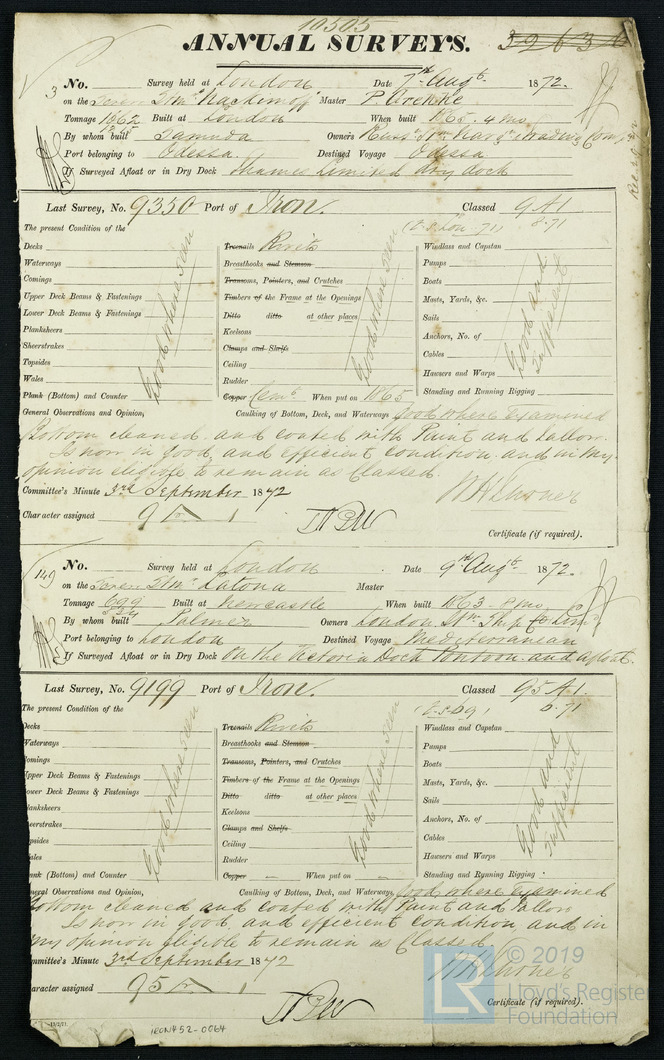 10505
ANNUAL SURVEYS.
39636
Rec 29/8/72
3 No. Survey held at London Date 7th Augt 1872.
on the Screw Stmr Nackimoff Master P. Arenke
Tonnage 1062 Built at London When built 1865 - 4 mo.
By whom built Samuda Owners Russn Stm Navign & Trading Compy
Port belonging to Odessa. Destined Voyage Odessa
If Surveyed Afloat or in Dry Dock Thames Limited dry dock
Last Survey, No. 9350 Port of Iron. Classed 9 A1
8.71
The present Condition of the
Decks
Waterways
Comings
Upper Deck Beams & Fastenings
Lower Deck Beams & Fastenings
Planksheers
Sheerstrakes
Topsides
Wales
Plank (Bottom) and Counter
Good where seen
Treenails Rivets
Breasthooks and Stemson
Transoms, Pointers, and Crutches
Timbers of the Frame at the Openings
Ditto ditto at other places
Keelsons
Clamps and Shelfs
Ceiling
Rudder
Copper Cemt When put on 1865
Good where seen
Windlass and Capstan
Pumps
Boats
Masts, Yards, &c.
Sails
Anchors, No. of
Cables
Hawsers and Warps
Standing and Running Rigging
Good and
Sufficient
General Observations and Opinion, Caulking of Bottom, Deck, and Waterways Good where Examined
Bottom cleaned and coated with Paint and Tallow.
Is now in good and efficient condition and in my
opinion eligible to remain as Classed.
Committee's Minute 3rd September 1872
Character assigned 9 A 1
Certificate (if required).
149 No. Survey held at London Date 9th Augt 1872.
on the Screw Stmr Latona Master
Tonnage 699 Built at Newcastle When built 1863 - 8 mo.
By whom built Palmer Owners London Stm Ship Co Limd
Port belonging to London Destined Voyage Mediterranean
If Surveyed Afloat or in Dry Dock On the Victoria Dock Pontoon and afloat.
Last Survey, No. 9199 Port of Iron. Classed 95 A1.
6.71
The present Condition of the
Decks
Waterways
Comings
Upper Deck Beams & Fastenings
Lower Deck Beams & Fastenings
Planksheers
Sheerstrakes
Topsides
Wales
Plank (Bottom) and Counter
Good where seen
Treenails Rivets
Breasthooks and Stemson
Transoms, Pointers, and Crutches
Timbers of the Frame at the Openings
Ditto ditto at other places
Keelsons
Clamps and Shelfs
Ceiling
Rudder
Copper When put on
Good where seen
Windlass and Capstan
Pumps
Boats
Masts, Yards, &c.
Sails
Anchors, No. of
Cables
Hawsers and Warps
Standing and Running Rigging
Good and
Sufficient
General Observations and Opinion, Caulking of Bottom, Deck, and Waterways, Good where Examined
Bottom cleaned and coated with Paint and Tallow
Is now in good and efficient condition and in
my opinion Eligible to remain as Classed.
Committee's Minute 3rd September 1872
Character assigned 95 A 1
Certificate (if required).
IRON452-0064
© 2019
LR Lloyd's Register
Foundation